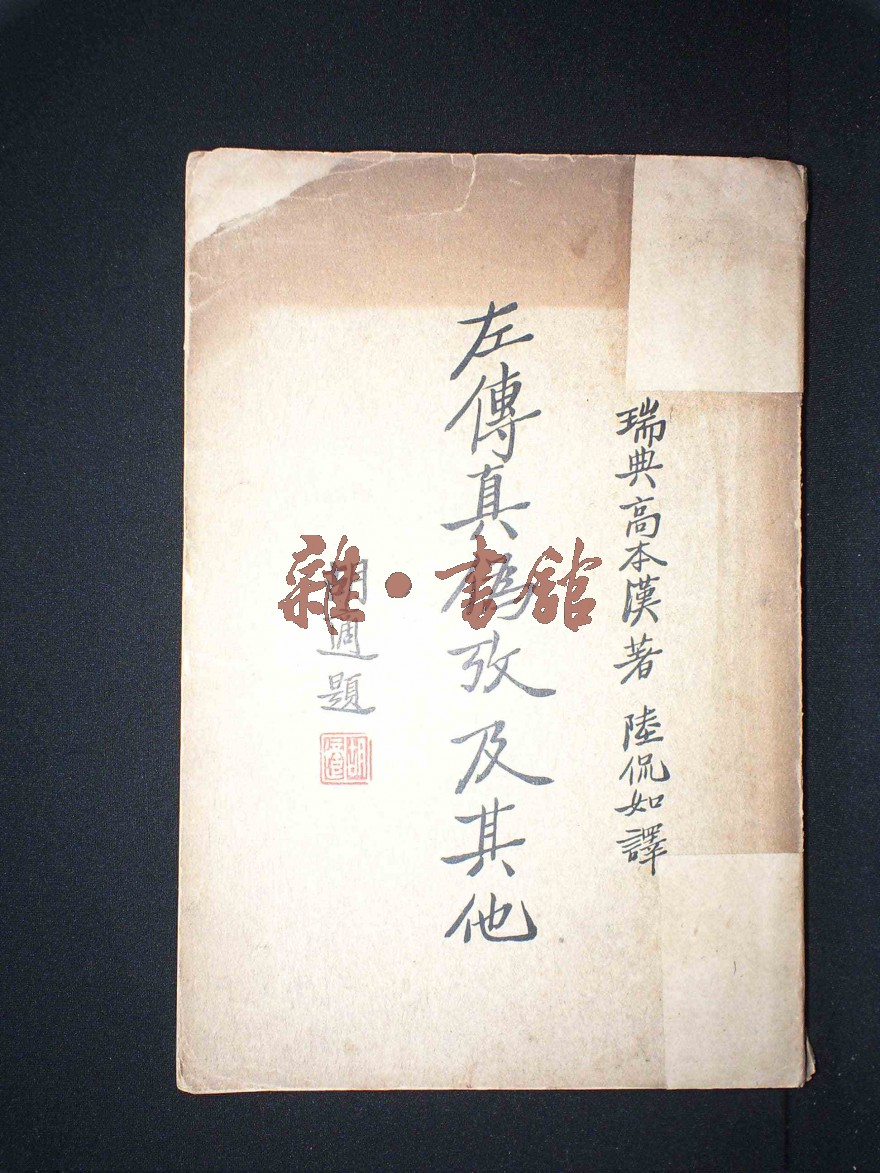 瑞典高本漢著 陸侃如譯
左傳真偽攷及其他
胡適題
胡適
雜·書館